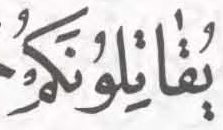 يُقٰاتِلُونَكُمْ